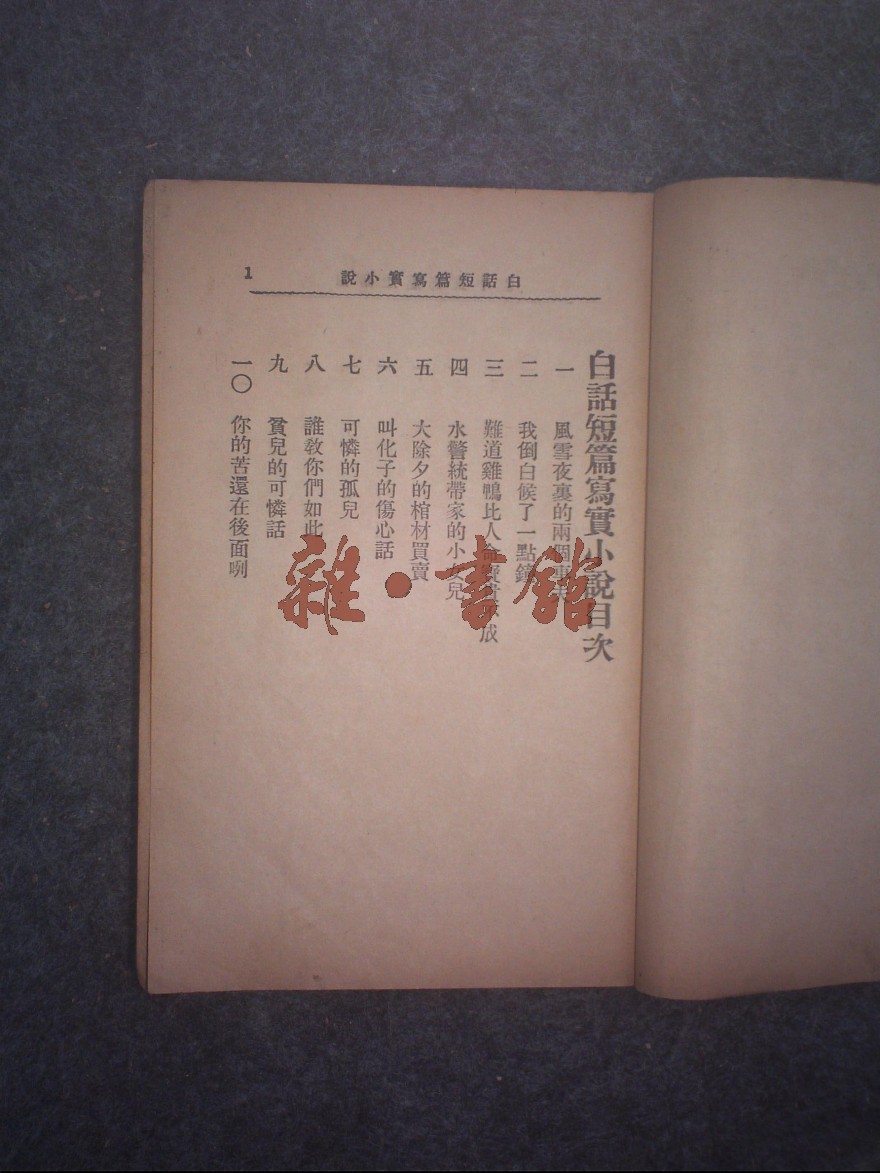 白話短篇寫實小說
1
白話短篇寫實小說目次
一 風雪夜裏的兩個車夫
二 我倒白候了一點鐘
三 難道雞鴨比人命寶貴不成
四 水警統帶家的小女兒
五 大除夕的棺材買賣
六 叫化子的傷心話
七 可憐的孤兒
八 誰敎你們如此
九 貧兒的可憐話
一〇 你的苦還在後面咧
雜·書館